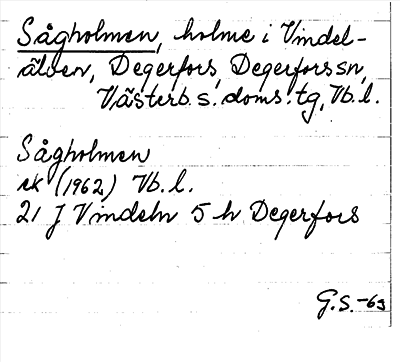 Sågholmen, holme i Vindel-
älven, Degerfors, Degerfors sn,
Västerb. s. doms. tg, Vb. l.
Sågholmen
ek (1962) Vb. l.
21 J Vindeln 5 h Degerfors
G.S.-63